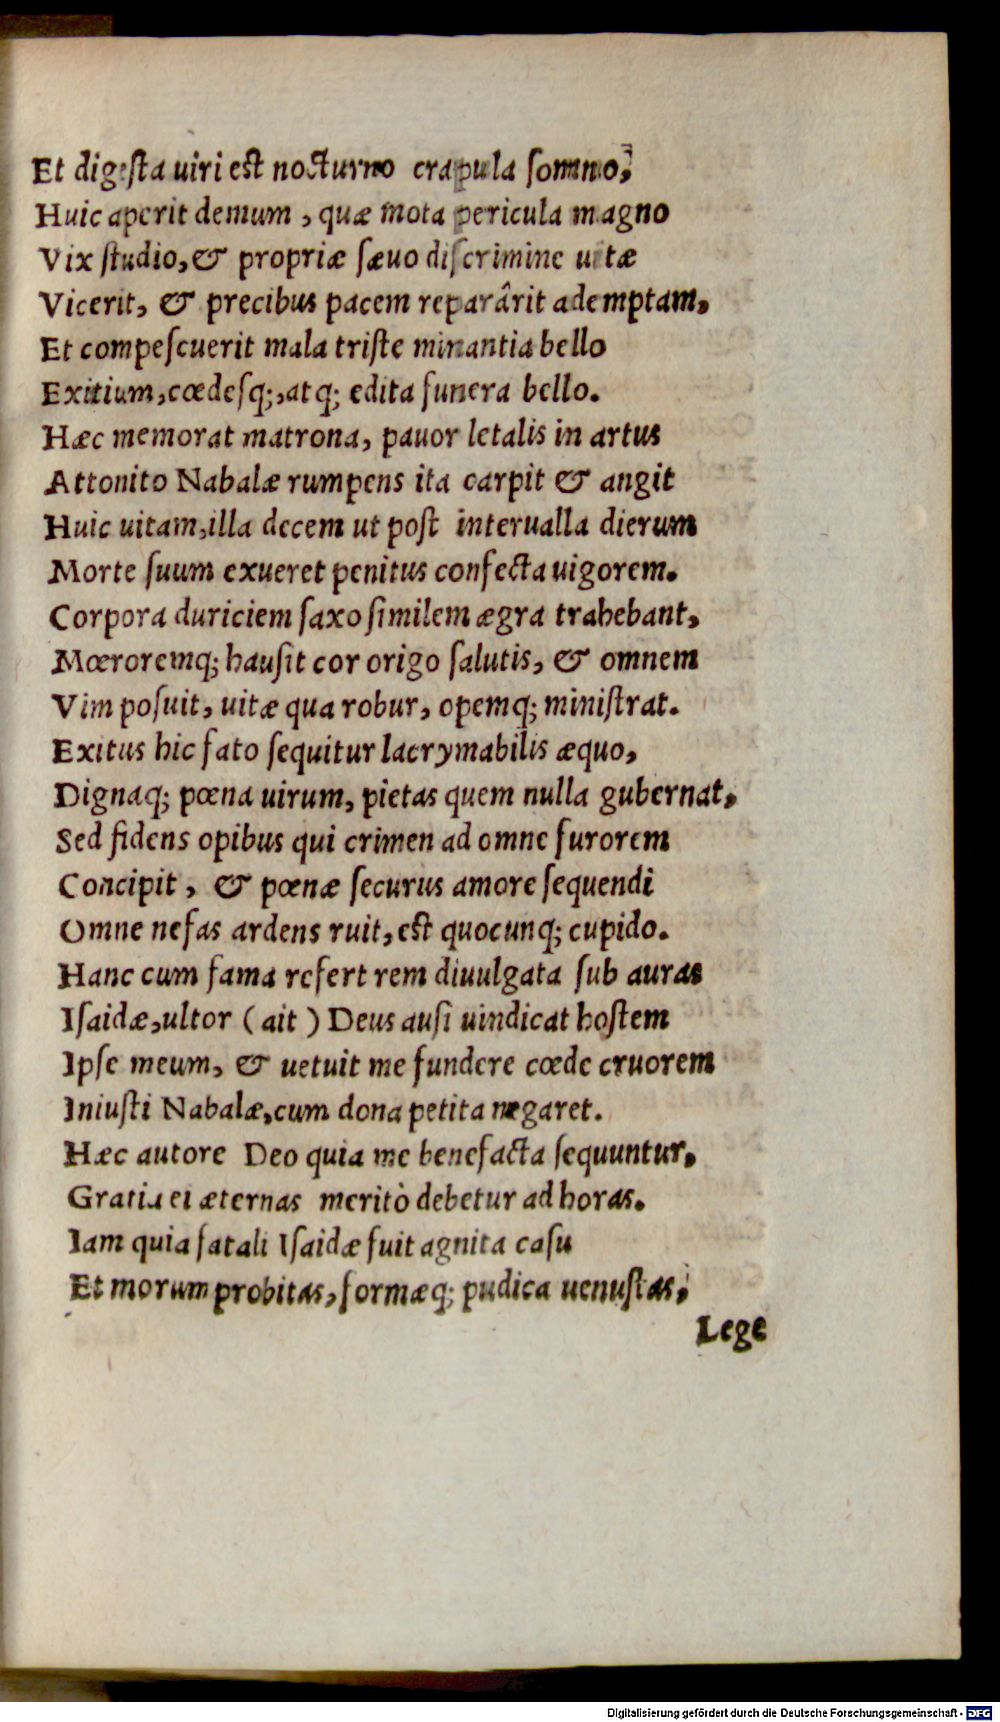 Et digeſta uiri eſt nocturno crapula ſomno,
Huic aperit demum, quæ mota pericula magno
Vix ſtudio, & propriæ ſæuo diſcrimine uitæ
Vicerit, & precibus pacem reparârit ademptam,
Et compeſcuerit mala triſte minantia bello
Exitium, cœdeſq;, atq; edita funera bello.
Hæc memorat matrona, pauor letalis in artus
Attonito Nabalæ rumpens ita carpit & angit
Huic uitam, illa decem ut poſt interualla dierum
Morte ſuum exueret penitus confecta uigorem.
Corpora duriciem ſaxo ſimilem ægra trahebant,
Mœroremq; hauſit cor origo ſalutis, & omnem
Vim poſuit, uitæ qua robur, opemq; miniſtrat.
Exitus hic fato ſequitur lacrymabilis æquo,
Dignaq; pœna uirum, pietas quem nulla gubernat,
Sed fidens opibus qui crimen ad omne furorem
Concipit, & pœnæ ſecurus amore ſequendi
Omne nefas ardens ruit, eſt quocunq; cupido.
Hanc cum fama refert rem diuulgata ſub auras
Iſaidæ, ultor (ait) Deus auſi uindicat hoſtem
Ipſe meum, & uetuit me fundere cœde cruorem
Iniuſti Nabalæ, cum dona petita negaret.
Hæc autore Deo quia me benefacta ſequuntur,
Gratia ei æternas meritò debetur ad horas.
Iam quia fatali Iſaidæ fuit agnita caſu
Et morum probitas, formæq; pudica uenuſtas,
Lege
Digitalisierung gefördert durch die Deutsche Forschungsgemeinschaft - DFG